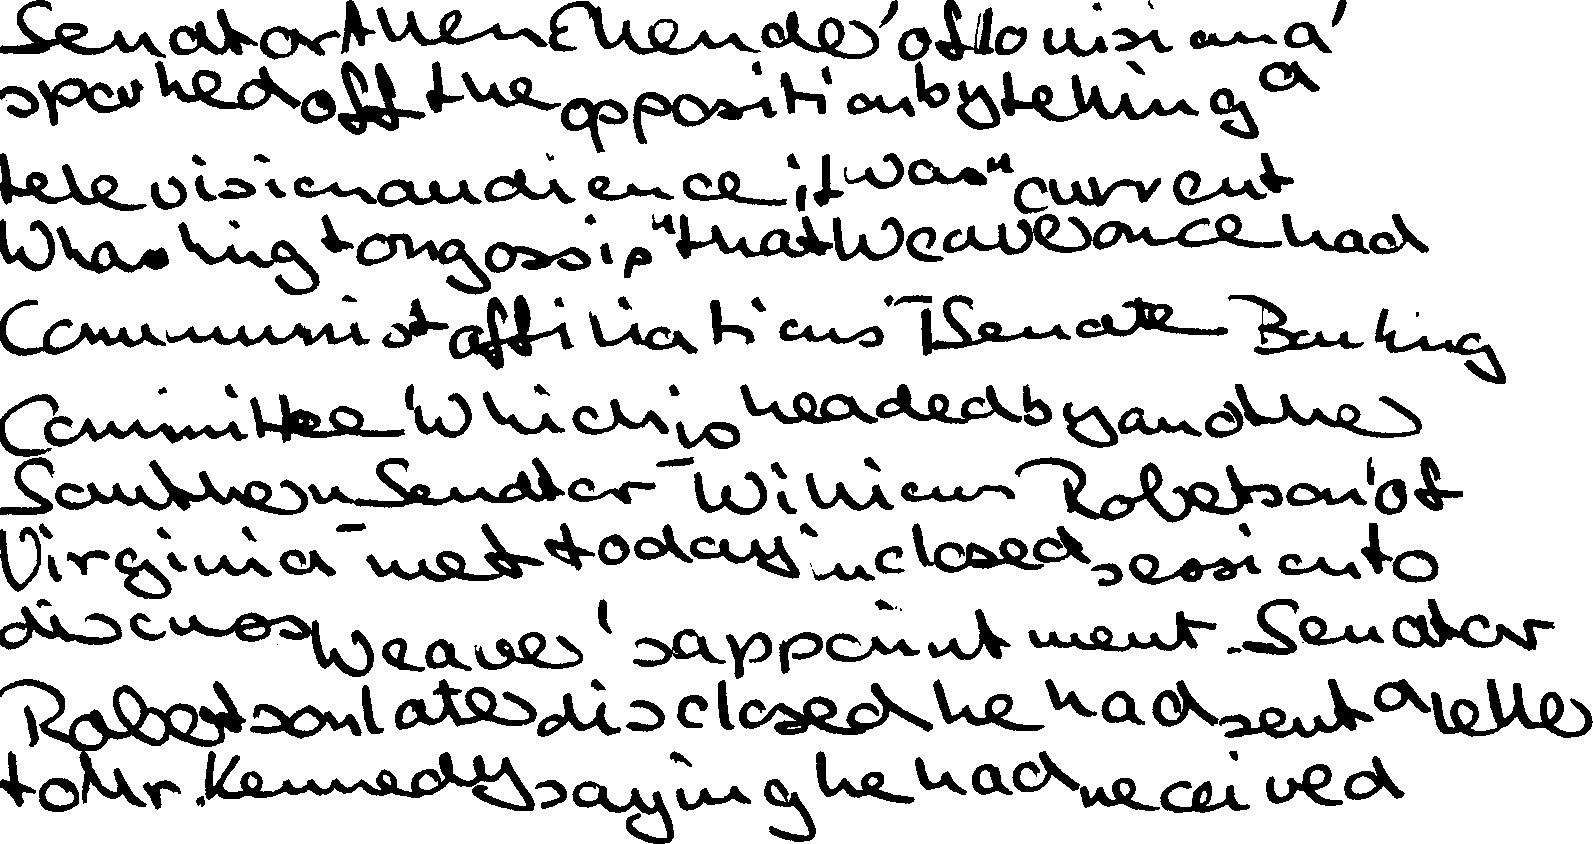 Senator Allen Ellender of Louisiana
sparked off the opposition by telling a
television audience it was "current
Whashington gossip" that Weaver once had
Communist affiliations. The Senate Banking
Committee, which is headed by another
Southern Senator - William Robertson of
Virginia - met today in closed session to
discuss Weaver's appointment. Senator
Robertson later disclosed he had sent a letter
to Mr. Kennedy saying he had received